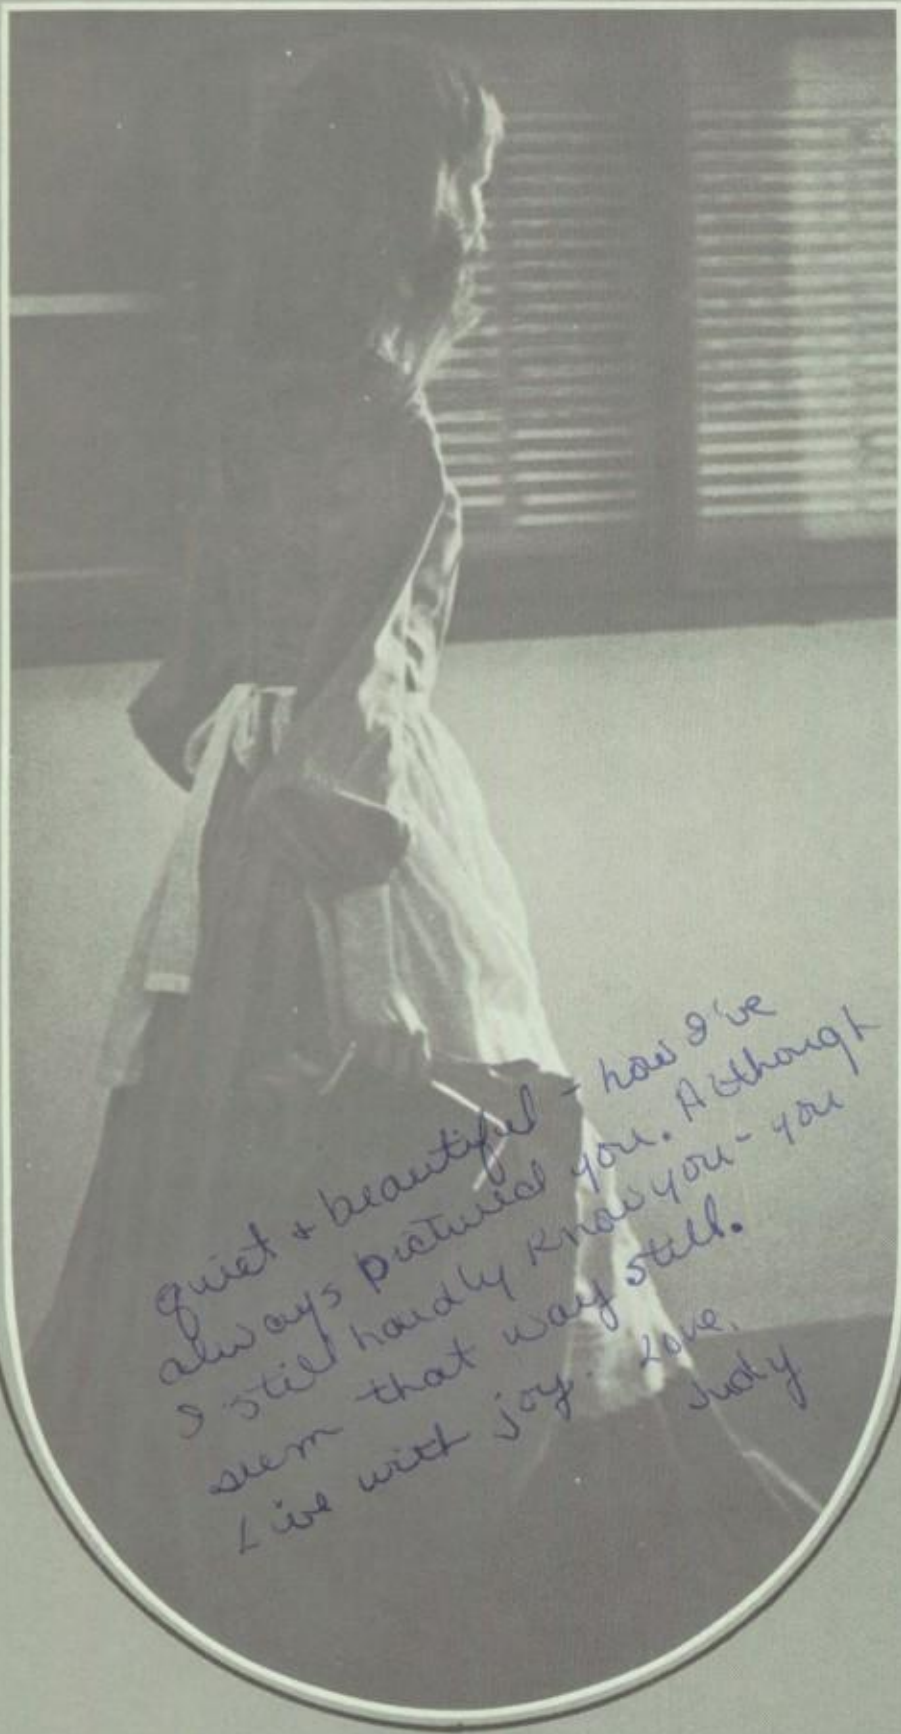 quiet + beautiful - how I've
always pictured you. Although
I still hardly know you - you
seem that way still.
Live with joy. Love,
Judy